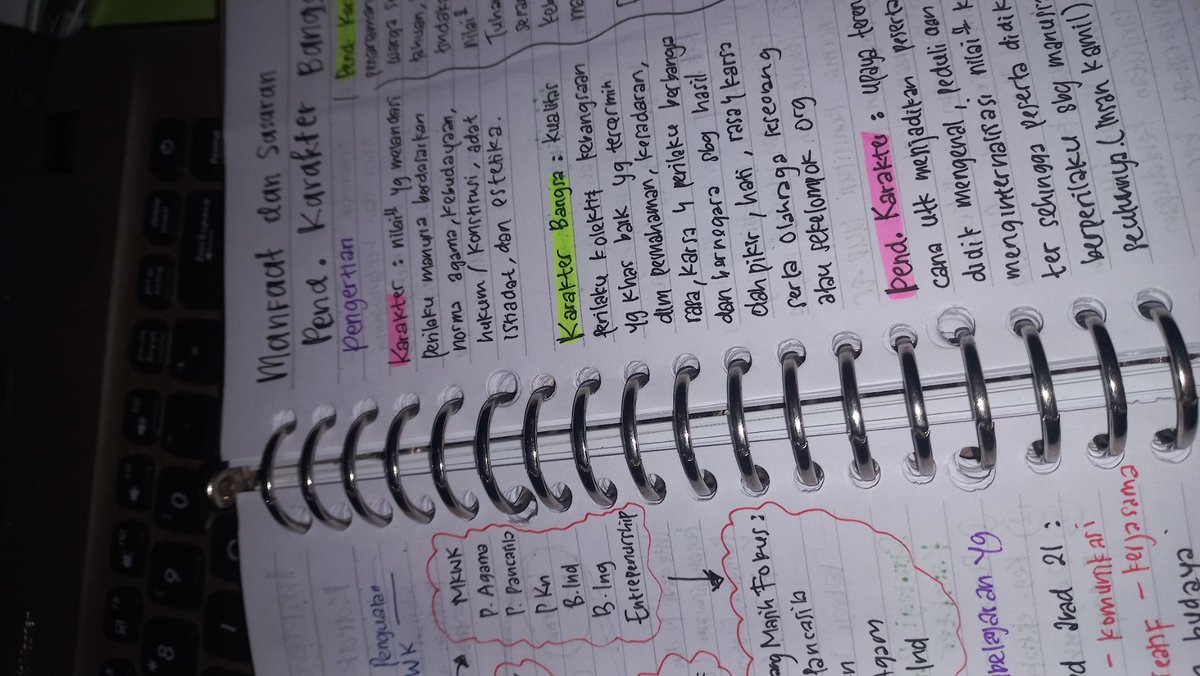 Penguatan
WK
MKWK
P. Agama
P. Pancasila
P. Kn
B. Ind
B. Ing
Entrepeneurship
ang Masih Fokus :
Pancasila
Agam
Ind
belajaran yg
d abad 21 :
- komunikasi
reatif - kerjasama
budaya
Manfaat dan Sasaran
Pend. Karakter Bangsa
Pengertian
Karakter : nilai² yg melandasi
perilaku manusia berdasarkan
norma agama, kebudayaan,
hukum / konstitusi, adat
istiadat, dan estetika.
Karakter Bangsa : kualitas
perilaku kolektif kebangsaan
yg khas baik yg tercermin
dlm pemahaman, kesadaran,
rasa, karsa & perilaku berbangsa
dan bernegara sbg hasil
olah pikir, hati, rasa & karsa
serta olahraga seseorang
atau sekelompok org
Pend. Karakter : upaya teren
cana utk menjadikan peserta
didik mengenal, peduli dan
menginternalisasi nilai² k
ter sehingga peserta didik
berperilaku sbg manusia
penuhnya. (insan kamil)
Pend Kar
penanaman
warga se
tahuan,
tindaka
nilai²
Tuha